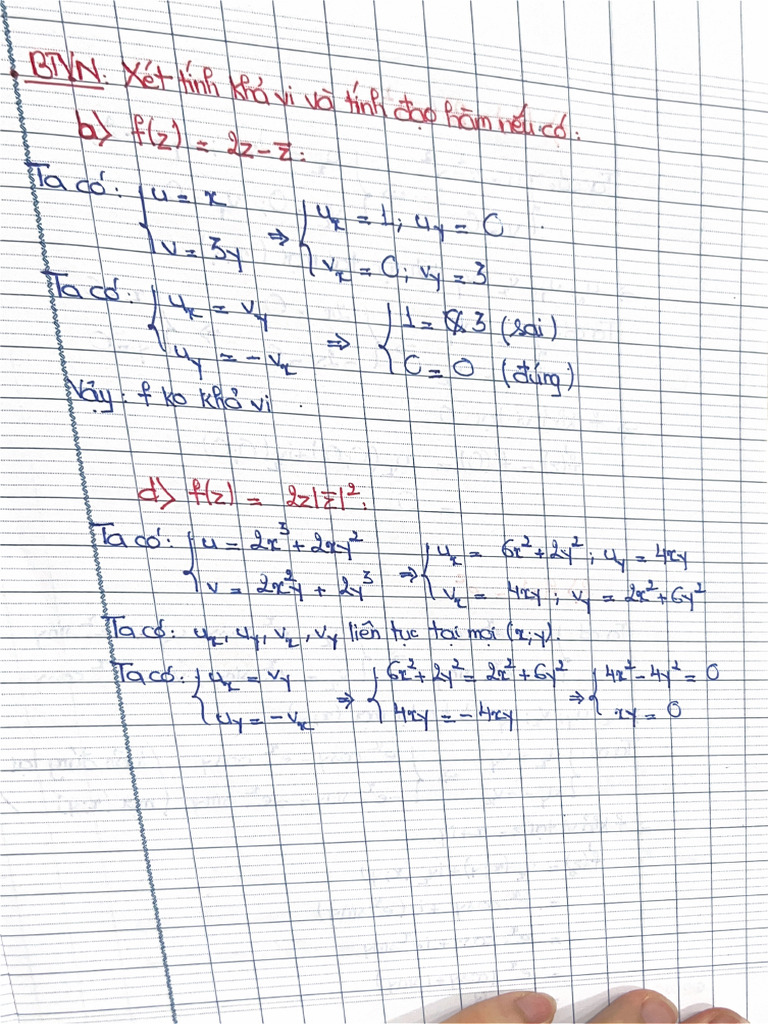 BTVN: Xét tính khả vi và tính đạo hàm nếu có:
b) f(z) = 2z - z̅:
Ta có: { u = x ; v = 3y ⇒ { u_x = 1; u_y = 0 ; v_x = 0; v_y = 3
Ta có: { u_x = v_y ; u_y = -v_x ⇒ { 1 = 3 (sai) ; 0 = 0 (đúng)
Vậy: f ko khả vi.
d) f(z) = 2z|z̅|²:
Ta có: { u = 2x³ + 2xy² ; v = 2x²y + 2y³ ⇒ { u_x = 6x² + 2y²; u_y = 4xy ; v_x = 4xy; v_y = 2x² + 6y²
Ta có: u_x, u_y, v_x, v_y liên tục tại mọi (x;y).
Ta có: { u_x = v_y ; u_y = -v_x ⇒ { 6x² + 2y² = 2x² + 6y² ; 4xy = -4xy ⇒ { 4x² - 4y² = 0 ; xy = 0